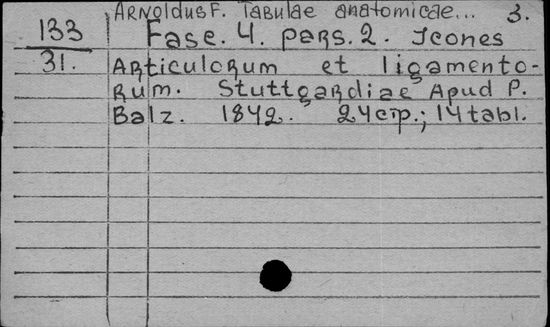 Arnoldus F. Tabulae anatomicae... 3.
133 Fasc. 4. pars. 2. Icones
31. Articulorum et ligamento-
rum. Stuttgardiae Apud P.
Balz. 1842. 24 стр.; 14 tabl.